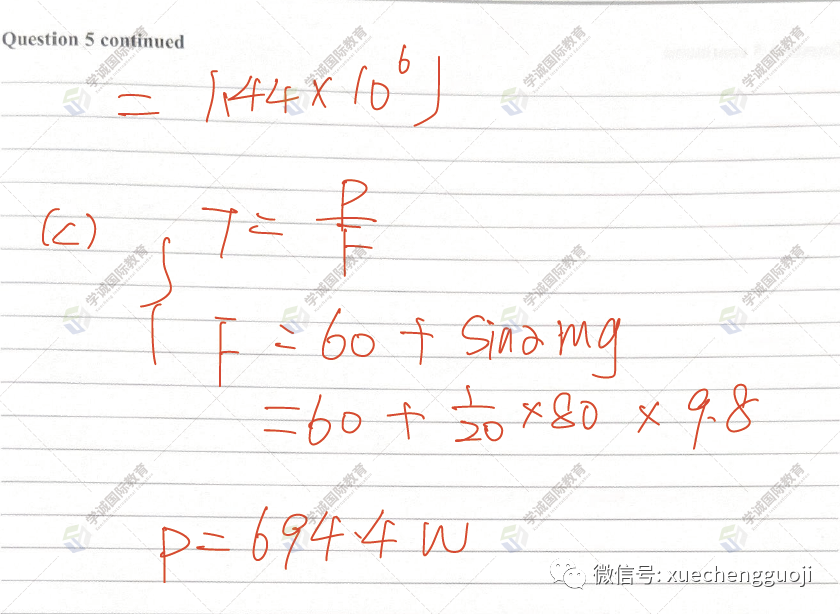 Question 5 continued
= 1.44 × 10⁶ J
(c) 7 = P/F
F = 60 + sinα mg
= 60 + 1/20 × 80 × 9.8
P = 694.4 W
学诚国际教育
微信号: xuechengguoji